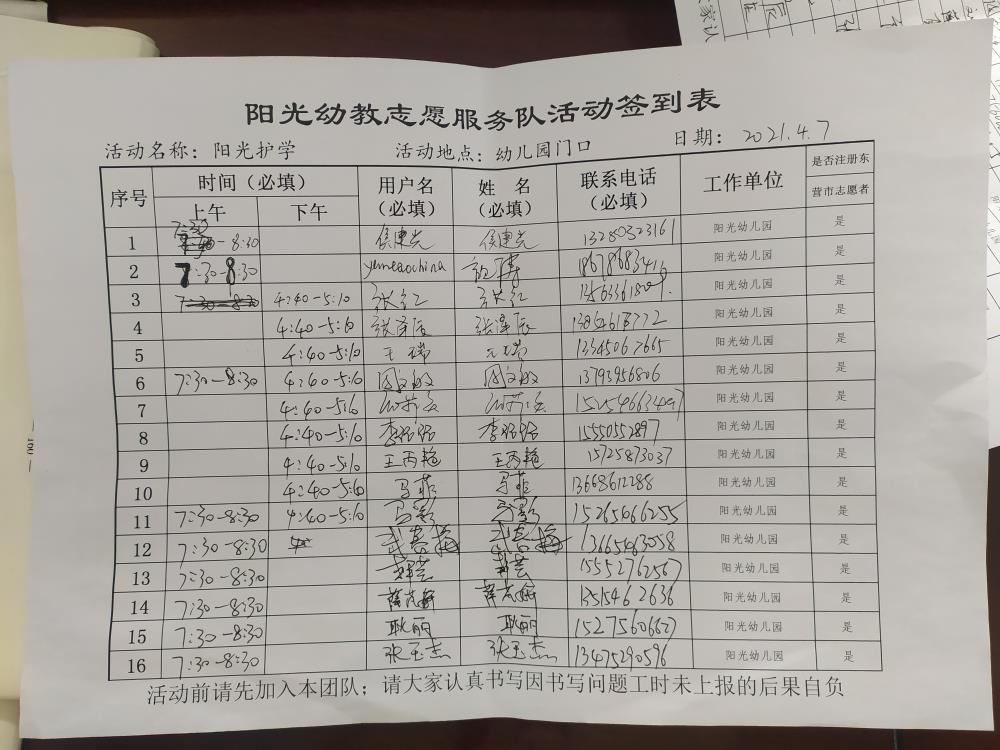 阳光幼教志愿服务队活动签到表
活动名称：阳光护学 活动地点：幼儿园门口 日期：2021.4.7
序号 时间（必填） 用户名（必填） 姓 名（必填） 联系电话（必填） 工作单位 是否注册东营市志愿者
上午 下午
1 7:30-8:30 侯建光 侯建光 13280323161 阳光幼儿园 是
2 7:30-8:30 yemeaochina 阳光幼儿园 是
3 4:40-5:10 张红 张红 阳光幼儿园 是
4 4:40-5:10 张泽辰 张泽辰 阳光幼儿园 是
5 4:40-5:10 王瑞 王瑞 13345067665 阳光幼儿园 是
6 7:30-8:30 4:40-5:10 周文敏 周文敏 13793956806 阳光幼儿园 是
7 4:40-5:10 阳光幼儿园 是
8 4:40-5:10 李铭铭 李铭铭 15550552897 阳光幼儿园 是
9 4:40-5:10 王丙艳 王丙艳 15725873037 阳光幼儿园 是
10 4:40-5:10 马菲 马菲 13668612288 阳光幼儿园 是
11 7:30-8:30 4:40-5:10 马影 马影 15265066255 阳光幼儿园 是
12 7:30-8:30 武春梅 武春梅 13665463058 阳光幼儿园 是
13 7:30-8:30 15552762567 阳光幼儿园 是
14 7:30-8:30 阳光幼儿园 是
15 7:30-8:30 耿丽 耿丽 15275606627 阳光幼儿园 是
16 7:30-8:30 张玉杰 张玉杰 13475290596 阳光幼儿园 是
活动前请先加入本团队；请大家认真书写因书写问题工时未上报的后果自负